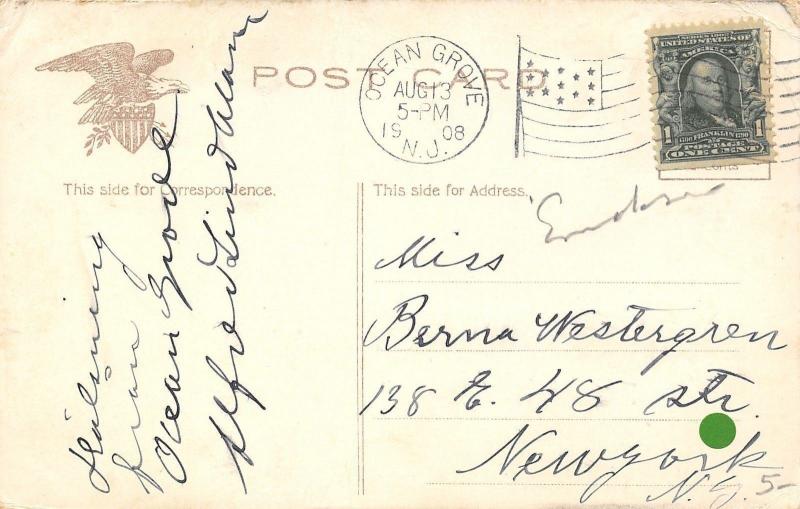 POST CARD
OCEAN GROVE
AUG 13
5-PM
1908
N.J.
SERIES 1902
UNITED STATES OF
AMERICA
1 1706 FRANKLIN 1790 1
POSTAGE
ONE CENT
This side for Correspondence.
This side for Address.
Hälsning
från
Ocean Grove
Alfred Lindman
Miss
Berna Westergren
138 E. 48 str.
New york
N.Y. 5-